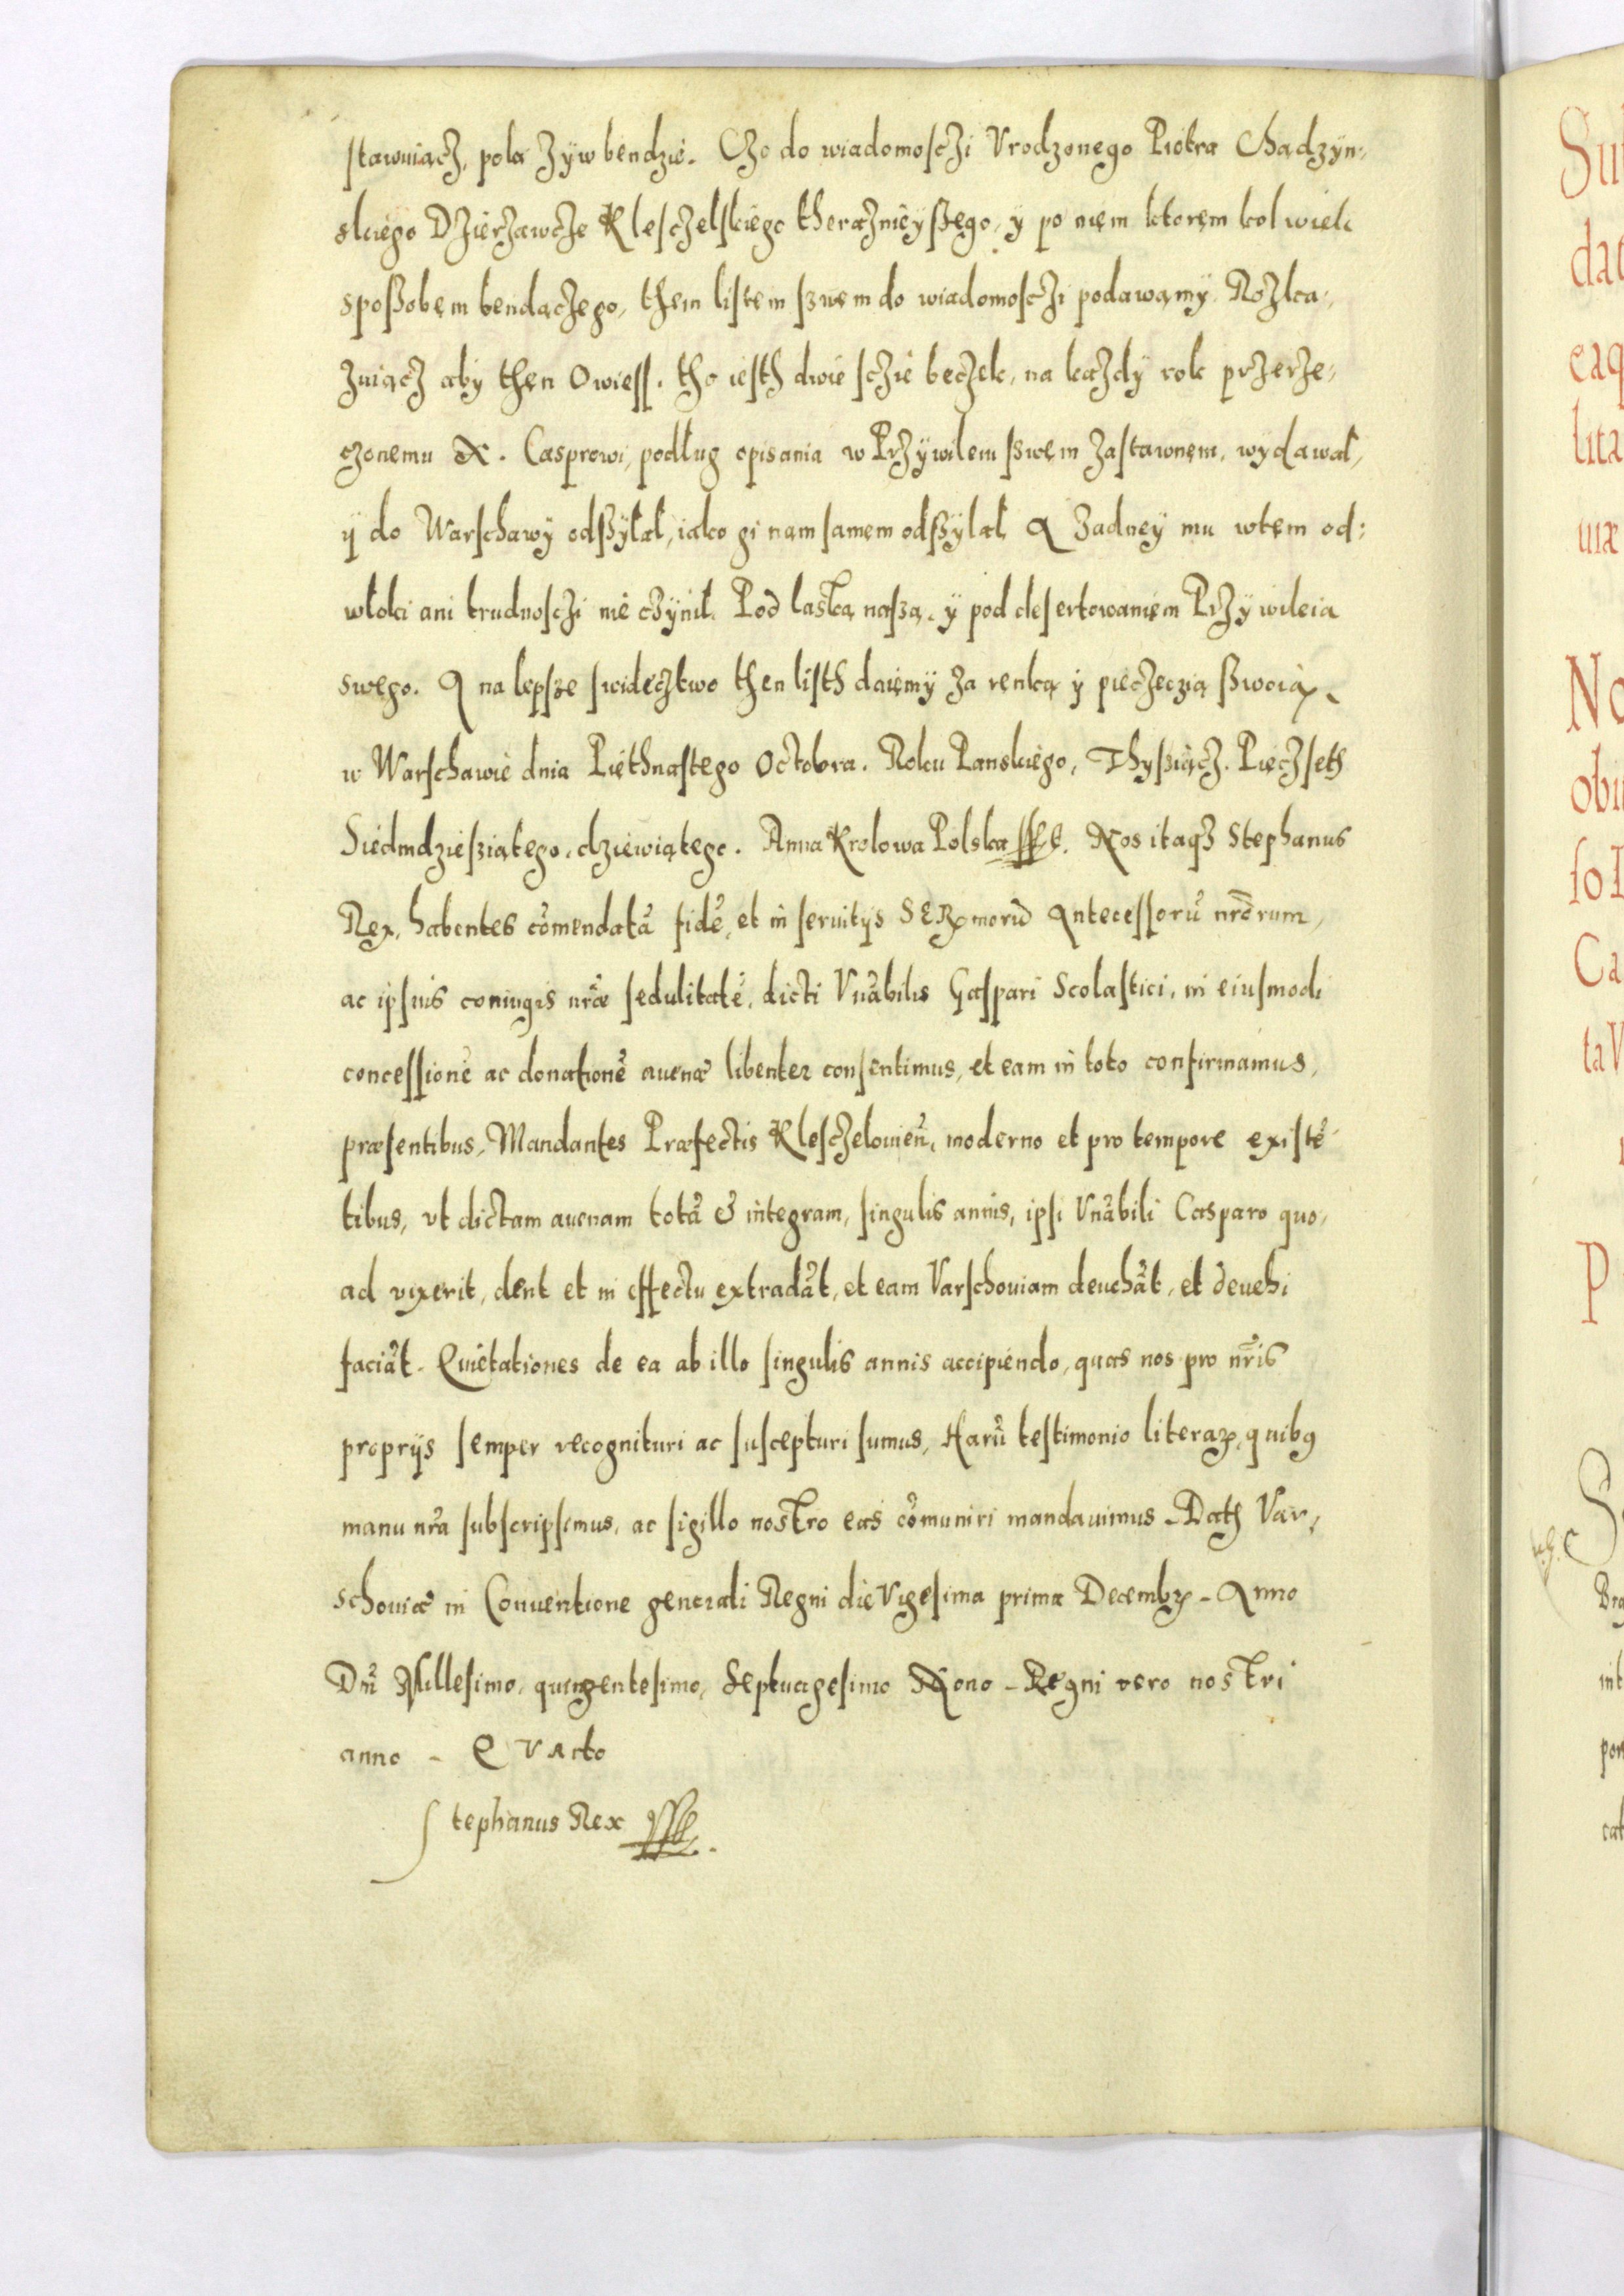 stawuiącz, pola zÿw bendzie. Czo do wiadomosczi Vrodzonego Piotra Chadzÿn:
skiego Dzierzawcze Klesczelskiego therazniÿeyßego, ÿ po nięm ktoręm kolwiek
spoßobęm bendączego, thęm listęm ßwęm do wiadomosczi podawamÿ. Rozka:
zuiącz abÿ then Owiess. tho iesth dwie sczie beczek, na kazdÿ rok przerze:
czonemu X. Casprowi, podług opisania w Przÿwilem ßwęm zastawnęm, wÿdawał,
ÿ do Warschawÿ odßÿłał, iako gi nąm samęm odßÿłał, A zadneÿ mu wtęm od:
włoki ani trudnosczi nie czÿnił. Pod laską naßą, ÿ pod desertowaniem Przÿwileia
swego. A na lepsze swideczstwo then listh daięmÿ za renką ÿ pieczeczią ßwoią.
w Warschawie dnia Piethnastego Octobra. Roku Panskiego, Thysziącz. Pięczseth
Siedmdziesziątego, dziewiątego. Anna Krolowa Polska sst. Nos itaqʒ Stephanus
Rex, habentes cōmendatā fidē, et in seruitijs SERmorū Antecessorū nrōrum,
ac ipsius coniugis nrǣ sedulitatē, dicti Vnābilis Gaspari Scolastici, in eiusmodi
concessionē ac donationē auenæ libenter consentimus, et eam in toto confirmamus,
præsentibus, Mandantes Præfectis Klesczelouien̄, moderno et pro tempore existē
tibus, vt dictam auenam totā & integram, singulis annis, ipsi Vnābili Casparo quo,
ad vixerit, dent et in effectu extradāt, et eam Varschouiam deuehāt, et deuehi
faciāt. Quietationes de ea ab illo singulis annis accipiendo, quas nos pro nr̄is
proprijs semper recognituri ac suscepturi sumus, Harū testimonio literaꝝ, quibꝯ
manu nr̄a subscripsimus, ac sigillo nostro eas cōmuniri mandauimus. Dath Var,
schouiæ in Conuentione generali Regni die Vigesima prima Decembꝝ. Anno
Dn̄i Millesimo, quingentesimo, Septuagesimo Nono. Regni vero nostri
anno - QVArto
Stephanus Rex sst.